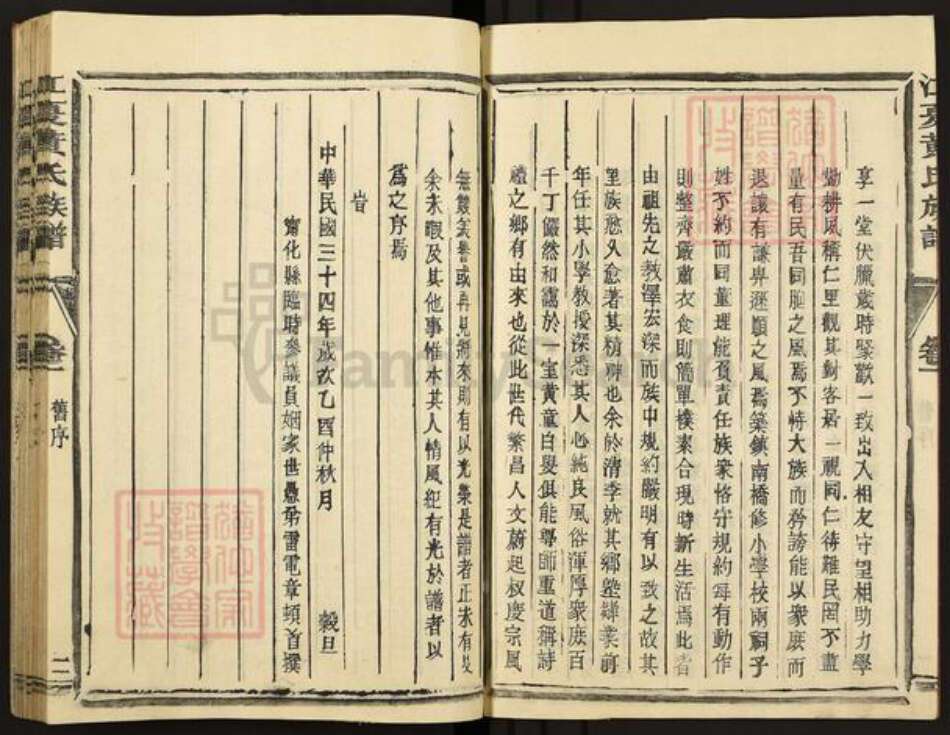 江夏黃氏族譜
享一堂伏臘歲時聚歡一致出入相友守望相助力學
勤耕風稱仁里觀其對客居一視同仁待難民罔不盡
量有民吾同胞之風焉不恃大族而矜誇能以衆庶而
退讓有謙卑遜順之風焉築鎮南橋修小學校兩祠子
姓不約而同董理能負責任族衆恪守規約每有動作
則整齊嚴肅衣食則簡單樸素合現時新生活焉此者
由祖先之教澤宏深而族中規約嚴明有以致之故其
里族愈久愈著其精神也余於清季就其鄉塾肄業前
年任其小學教授深悉其人心純良風俗渾厚衆庶百
千丁儼然和靄於一室黃童白叟俱能尊師重道稱詩
禮之鄉有由來也從此世代繁昌人文蔚起叔度宗風
無雙美譽或再見將來則有以光榮是譜者正未有艾
余未暇及其他事惟本其人情風紀有光於譜者以
為之序焉
旹
中華民國三十四年歲次乙酉仲秋月 穀旦
寧化縣臨時參議員姻家世愚弟雷電章頓首撰
江夏黃氏族譜
卷一
舊序
二